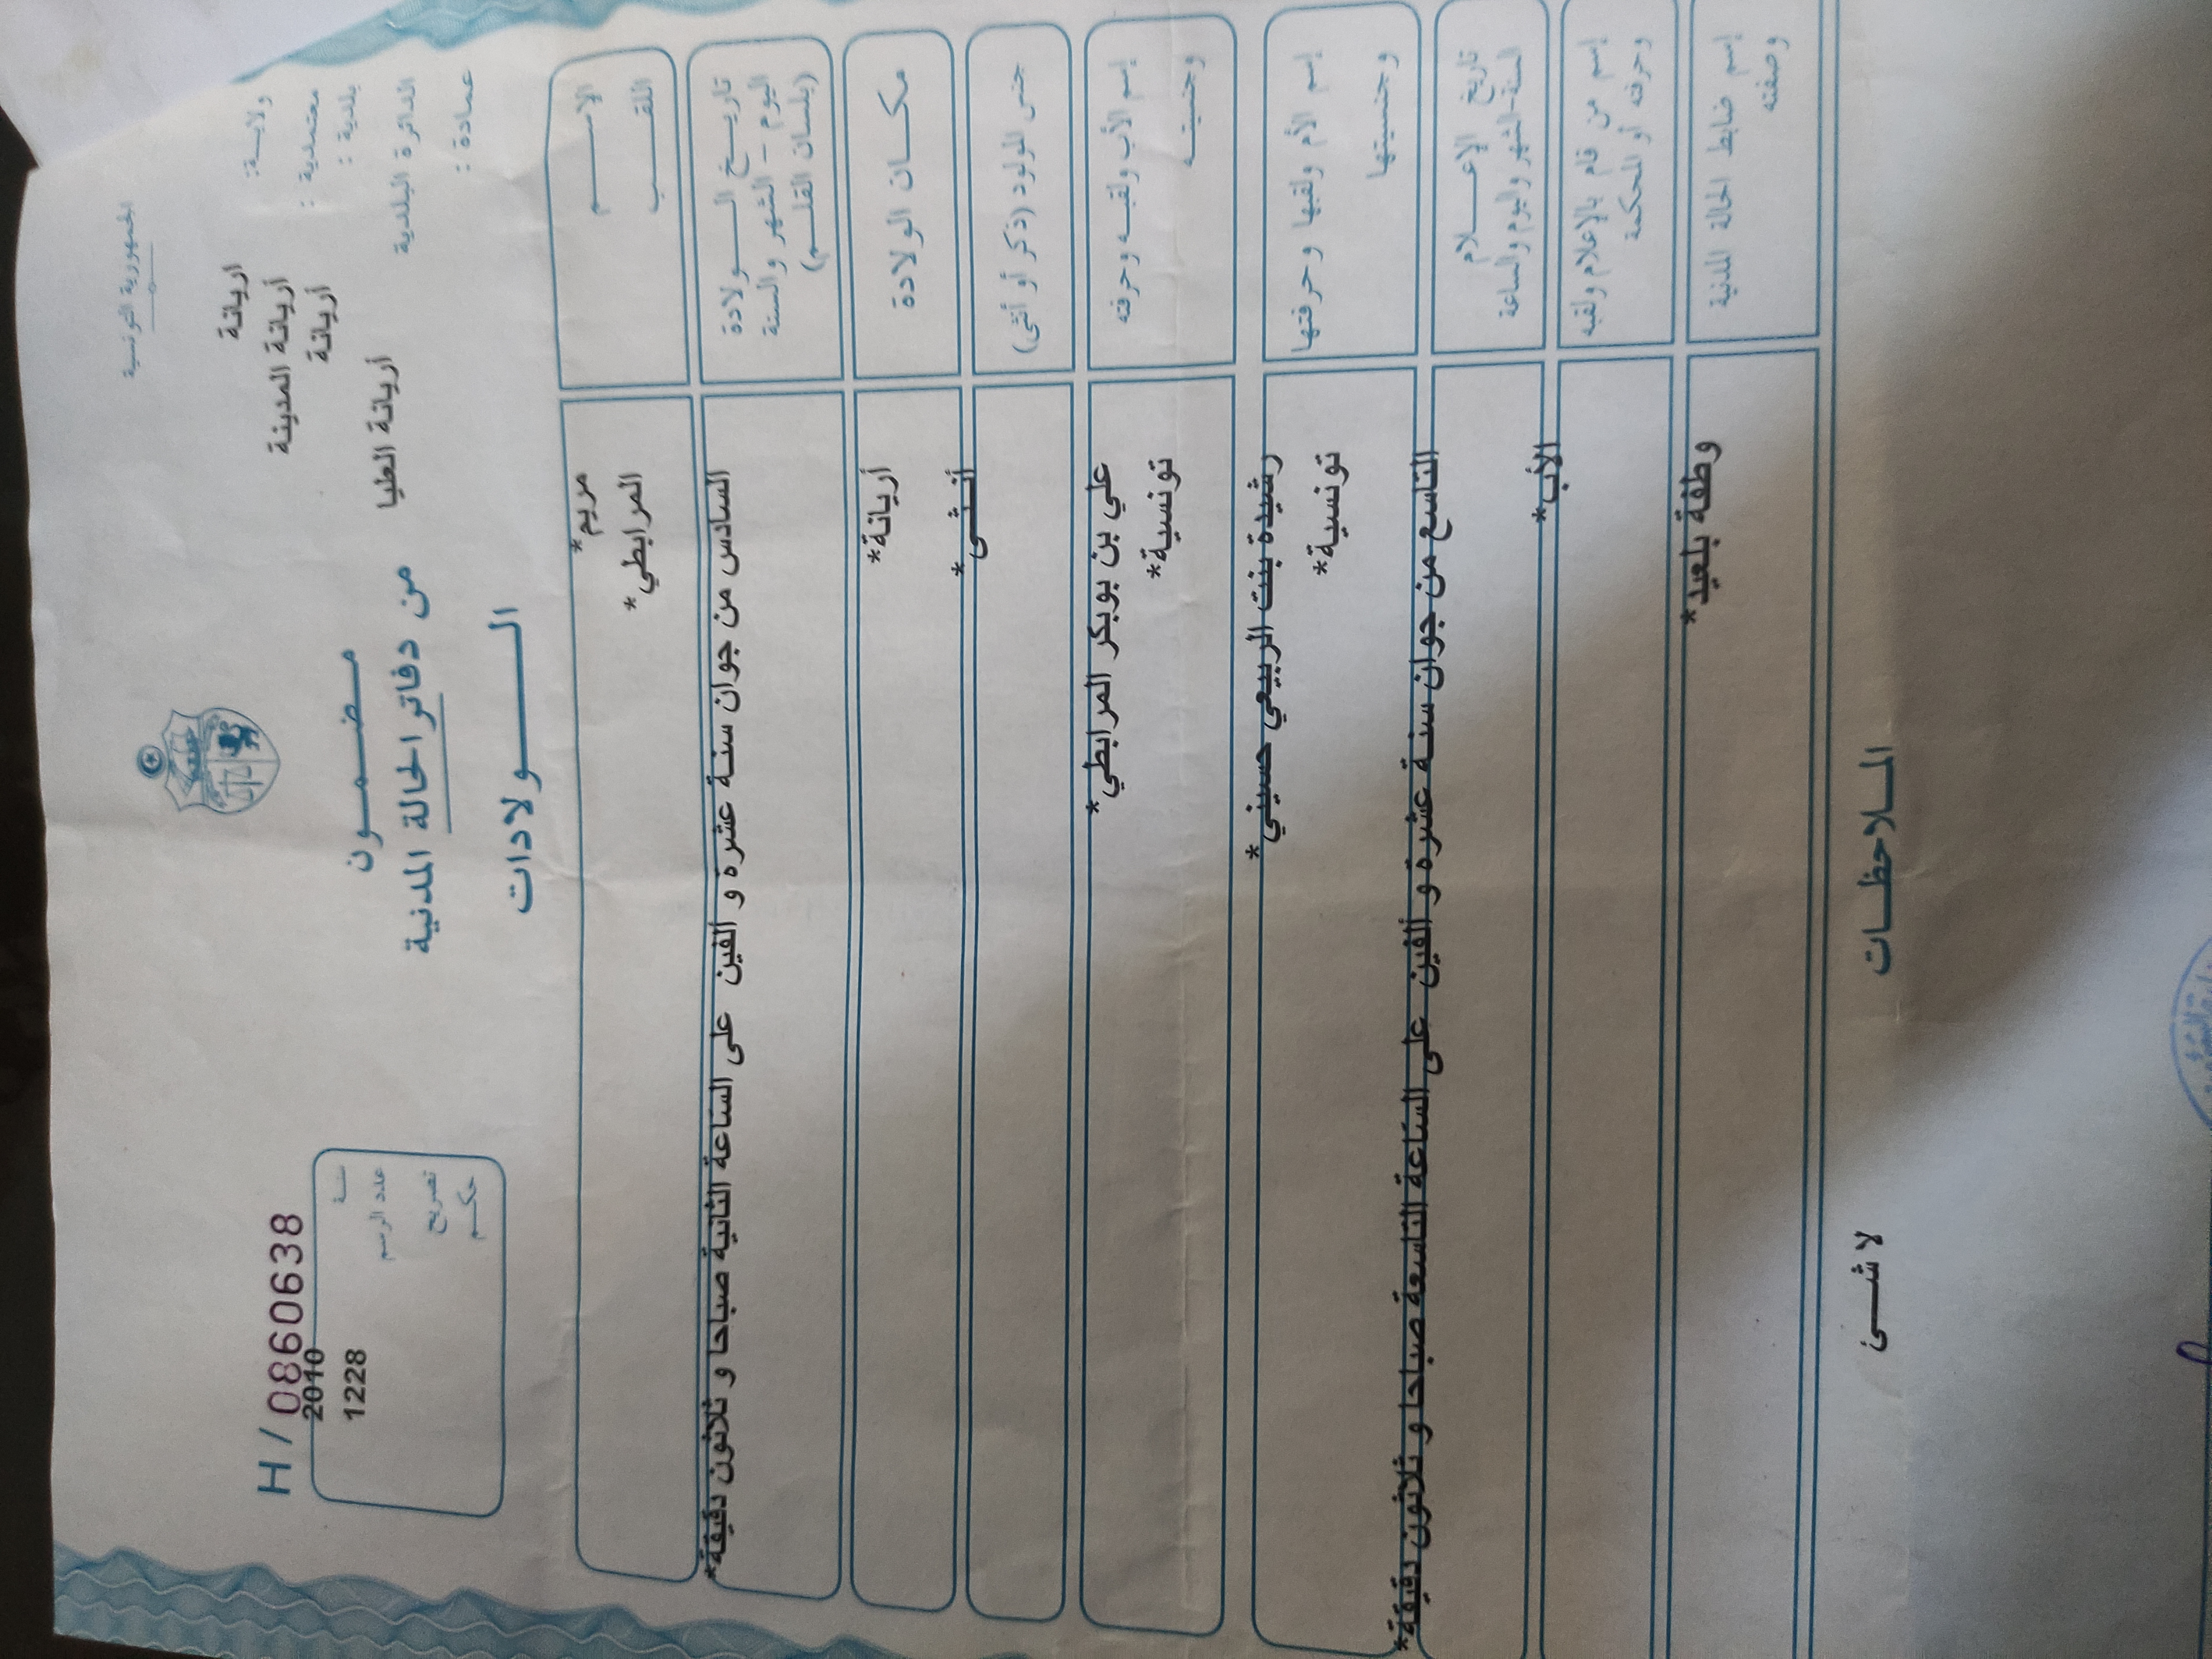 الجمهورية التونسية
ولايـــة: اريانة
معتمدية : أريانة المدينة
بلدية : أريانة
الدائرة البلدية أريانة العليا
عمادة :
H / 0860638
سنـــة 2010
عدد الرسم 1228
تصريح
حكـــم
مـضـمـــون
من دفاتر الحالة المدنية
الـــــولادات
الإســـــم مريم*
اللقـــــب المرابطي*
تاريــــخ الـــــولادة
اليوم – الشهر والسنة
(بلسان القلــم)
السادس من جوان سنة عشرة و الفين على الساعة الثانية صباحا و ثلاثون دقيقة*
مكـــان الولادة أريانة*
جنس المولود (ذكر أو أنثى) أنـثـى*
إسم الأب ولقبــه وحرفته علي بن بوبكر المرابطي*
وجنسيتـــه تونسية*
إسم الأم ولقبها وحرفتها رشيدة بنت الربيعي حسيني*
وجنسيتها تونسية*
تاريخ الإعــــلام
السنة-الشهر واليوم والساعة
التاسع من جوان سنة عشرة و ألفين على الساعة التاسعة صباحا و ثلاثون دقيقة*
إسم من قام بالإعلام ولقبه
وحرفته أو المحكمة
الأب*
إسم ضابط الحالة المدنية
وصفته
بلعيد*
المـلاحظـــات
لا شــــئ